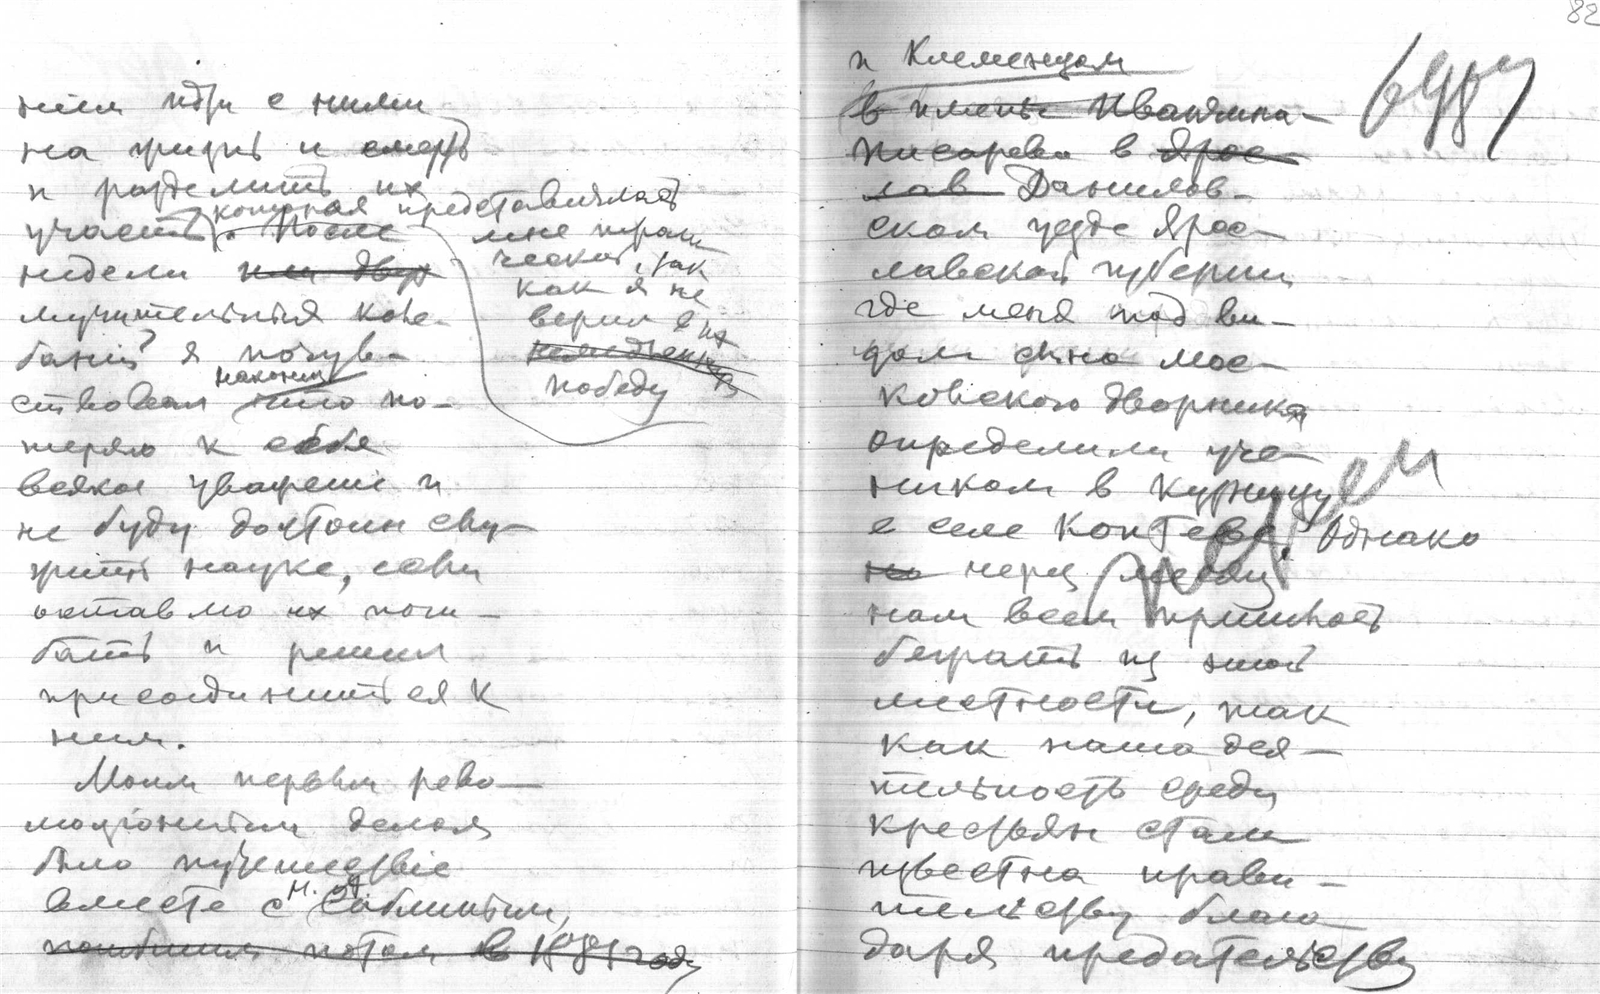 ним иди с ними
на жизнь и смерть
и разделить их
участь, которая представлялась
мне траги-
ческой, так
как я не
верил в их
победу
После
недели или двух
мучительных коле-
баний я почув-
ствовал наконец что по-
теряю к себе
всякое уважение и
не буду достоин слу-
жить науке, если
оставлю их поги-
бать и решил
присоединиться к
ним.
Моим первым рево-
люціонным делом
было путешествіе
вместе с Н. А. Саблиным,
погибшим потом в 1881 году
82
и Клеменцом
в именье Иванчина-
Писарева в Ярос-
лав Данилов-
ском уезде Ярос-
лавской губернии
где меня под ви-
дом сына мос-
ковского дворника
определили уче-
ником в кузницу
в селе Коптеве. Однако
но через месяц
нам всем пришлось
бежать из этой
местности, так
как наша дея-
тельность среди
крестьян стала
известна прави-
тельству благо-
даря предательству